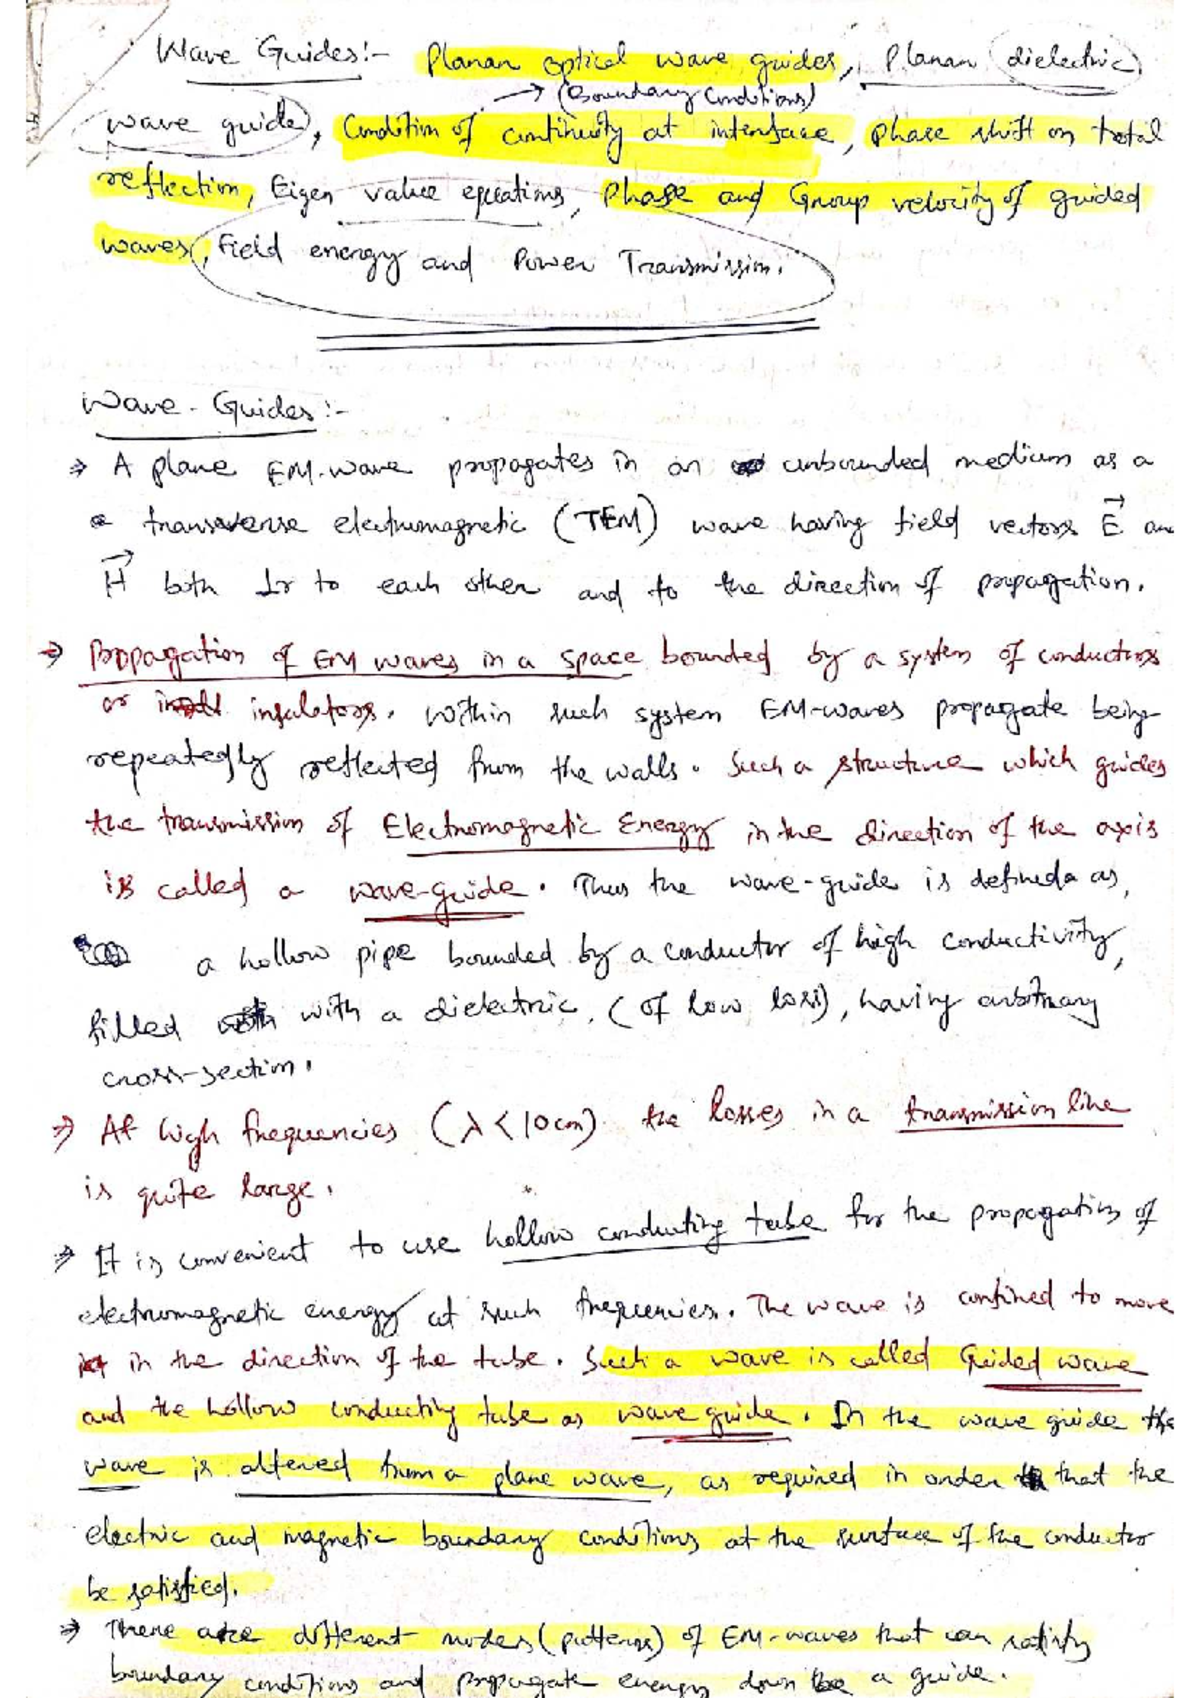 Wave Guides:- Planar optical wave guides, Planar dielectric
→ (Boundary Conditions)
wave guide), Condition of continuity at interface, phase shift on total
reflection, Eigen value equations, Phase and Group velocity of guided
waves, Field energy and Power Transmission.
Wave-Guides:-
⇒ A plane EM-wave propagates in an unbounded medium as a
transverse electromagnetic (TEM) wave having field vectors E⃗ an
H⃗ both ⊥r to each other and to the direction of propagation.
⇒ Propagation of EM waves in a space bounded by a system of conductors
or insulators. Within such system EM-waves propagate being
repeatedly reflected from the walls. Such a structure which guides
the transmission of Electromagnetic Energy in the direction of the axis
is called a wave-guide. Thus the wave-guide is defined as,
a hollow pipe bounded by a conductor of high conductivity,
filled with a dielectric, (of low loss), having arbitrary
cross-section.
⇒ At high frequencies (λ<10cm) the losses in a transmission line
is quite large.
⇒ It is convenient to use hollow conducting tube for the propagation of
electromagnetic energy at such frequencies. The wave is confined to move
in the direction of the tube. Such a wave is called Guided wave
and the hollow conducting tube as wave guide. In the wave guide the
wave is altered from a plane wave, as required in order that the
electric and magnetic boundary conditions at the surface of the conductor
be satisfied.
⇒ There are different modes (patterns) of EM-waves that can satisfy
boundary conditions and propagate energy down a guide.